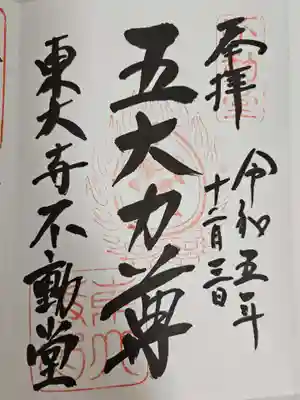 奉拝
令和五年
十二月三日
五大力尊
東大寺不動堂